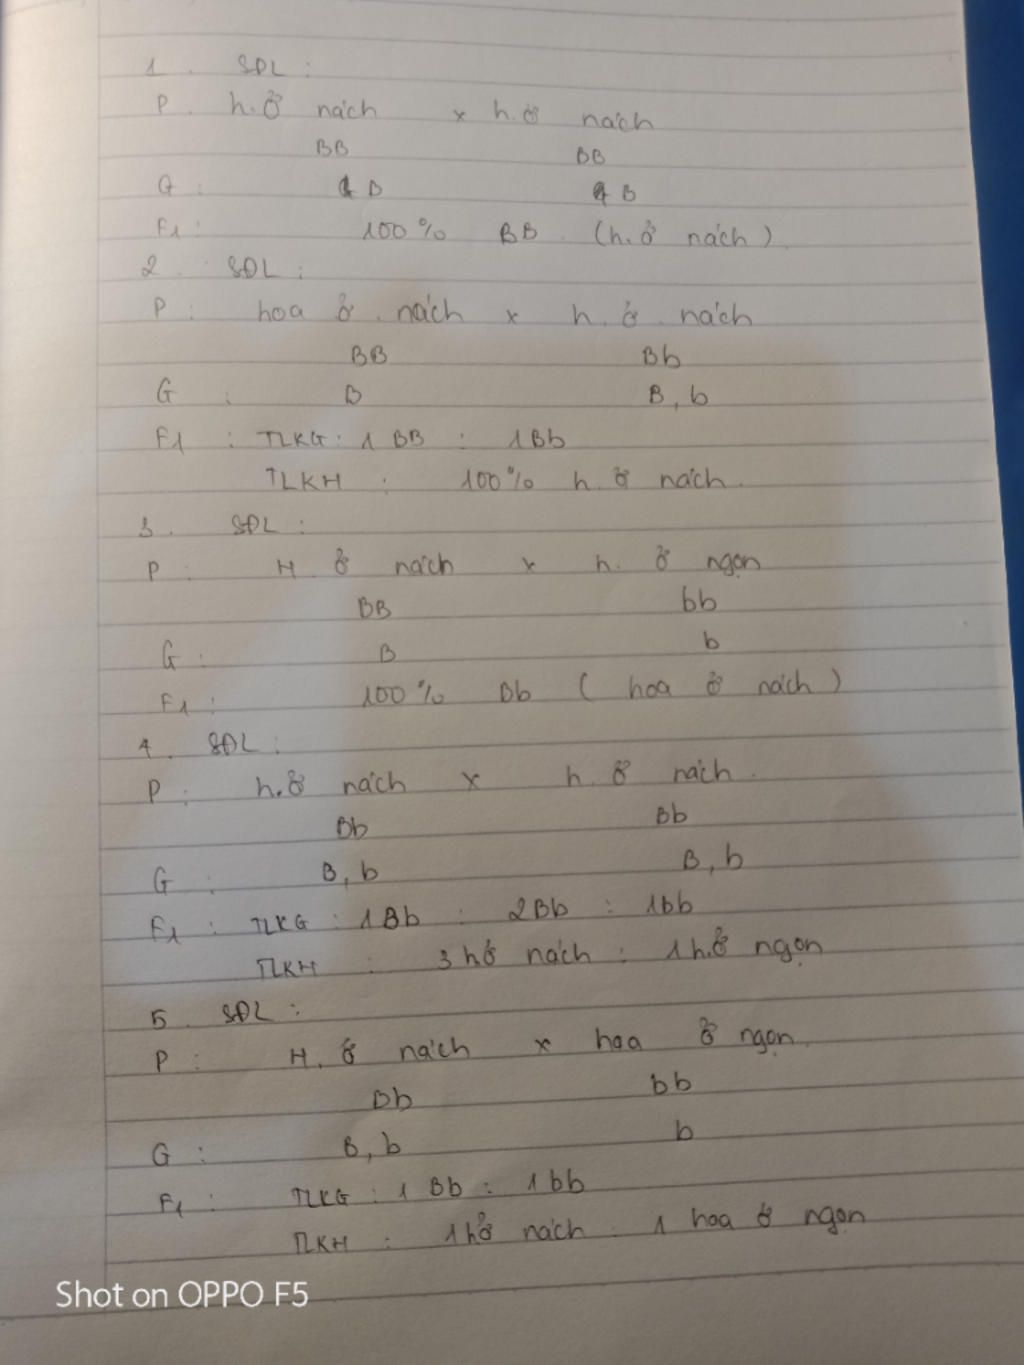 1. SĐL:
P. h.ở nách x h.ở nách
BB BB
G: B B
F1: 100% BB (h.ở nách).
2. SĐL:
P: hoa ở nách x h.ở nách
BB Bb
G: B B, b
F1: TLKG: 1 BB : 1Bb
TLKH: 100% h.ở nách.
3. SĐL:
P: H ở nách x h. ở ngọn
BB bb
G: B b
F1: 100% Bb (hoa ở nách)
4. SĐL:
P: h.ở nách x h.ở nách.
Bb Bb
G: B, b B, b
F1: TLKG: 1Bb : 2Bb : 1bb
TLKH: 3 hở nách : 1 h.ở ngọn
5. SĐL:
P: H. ở nách x hoa ở ngọn.
Bb bb
G: B, b b
F1: TLKG: 1 Bb : 1bb
TLKH: 1 hở nách : 1 hoa ở ngọn
Shot on OPPO F5